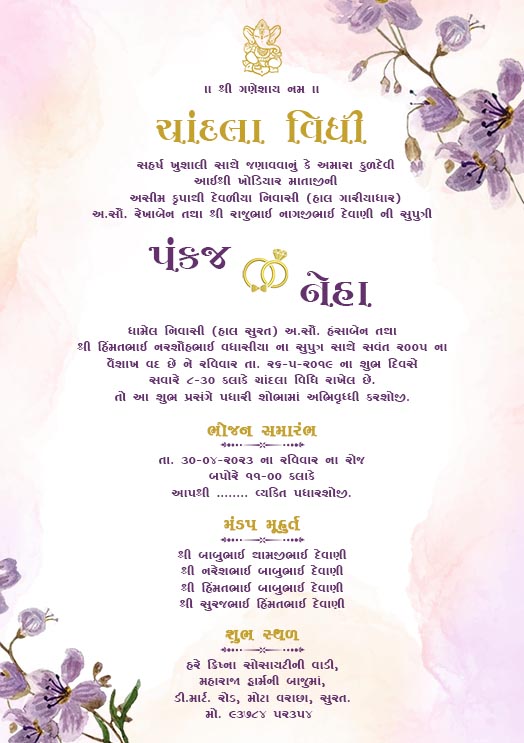 ॥ શ્રી ગણેશાય નમ ॥
ચાંદલા વિધી
સહર્ષ ખુશાલી સાથે જણાવવાનું કે અમારા કુળદેવી
આઈશ્રી ખોડિયાર માતાજીની
અસીમ કૃપાથી દેવળીયા નિવાસી (હાલ ગારીયાધાર)
અ.સૌ. રેખાબેન તથા શ્રી રાજુભાઈ નાગજીભાઈ દેવાણી ની સુપુત્રી
પંકજ
નેહા
ધામેલ નિવાસી (હાલ સુરત) અ.સૌ. હંસાબેન તથા
શ્રી હિંમતભાઈ નરશીહભાઈ વઘાસીયા ના સુપુત્ર સાથે સવંત ૨૦૦૫ ના
વૈશાખ વદ છે ને રવિવાર તા. ૨૬-૫-૨૦૧૯ ના શુભ દિવસે
સવારે ૮-૩૦ કલાકે ચાંદલા વિધિ રાખેલ છે.
તો આ શુભ પ્રસંગે પધારી શોભામાં અભિવૃધ્ધી કરશોજી.
ભોજન સમારંભ
તા. ૩૦-૦૪-૨૦૨૩ ના રવિવાર ના રોજ
બપોરે ૧૧-૦૦ કલાકે
આપશ્રી ........ વ્યકિત પધારશોજી.
મંડપ મૂહુર્ત
શ્રી બાબુભાઈ થામજીભાઈ દેવાણી
શ્રી નરેશભાઈ બાબુભાઈ દેવાણી
શ્રી હિંમતભાઈ બાબુભાઈ દેવાણી
શ્રી સુરજભાઈ હિંમતભાઈ દેવાણી
શુભ સ્થળ
હરે ક્રિષ્ના સોસાયટીની વાડી,
મહારાજા ફાર્મની બાજુમાં,
ડી.માર્ટ. રોડ, મોટા વરાછા, સુરત.
મો. ૯૩૭૮૪ ૫૨૩૫૪